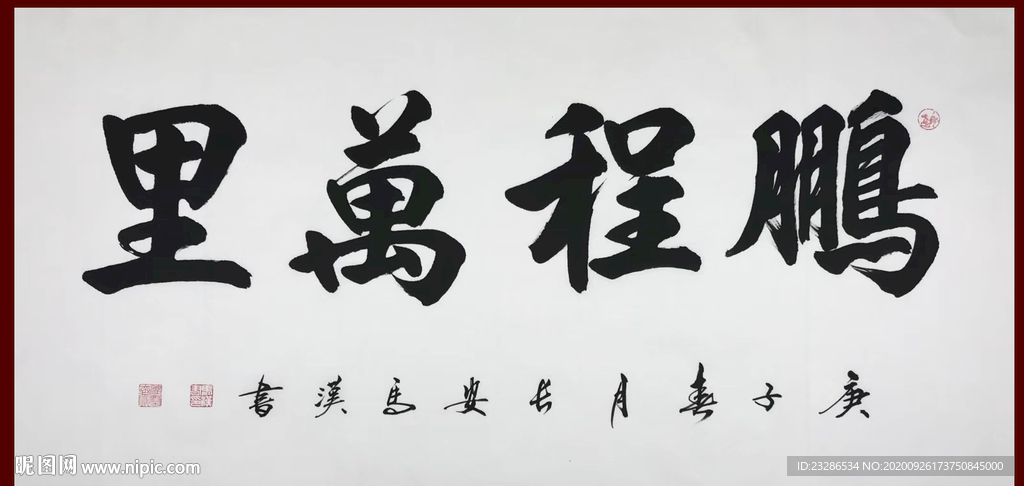 鵬程萬里
庚子春月長安馬漢書
昵图网 www.nipic.com
ID:23286534 NO:20200926173750845000